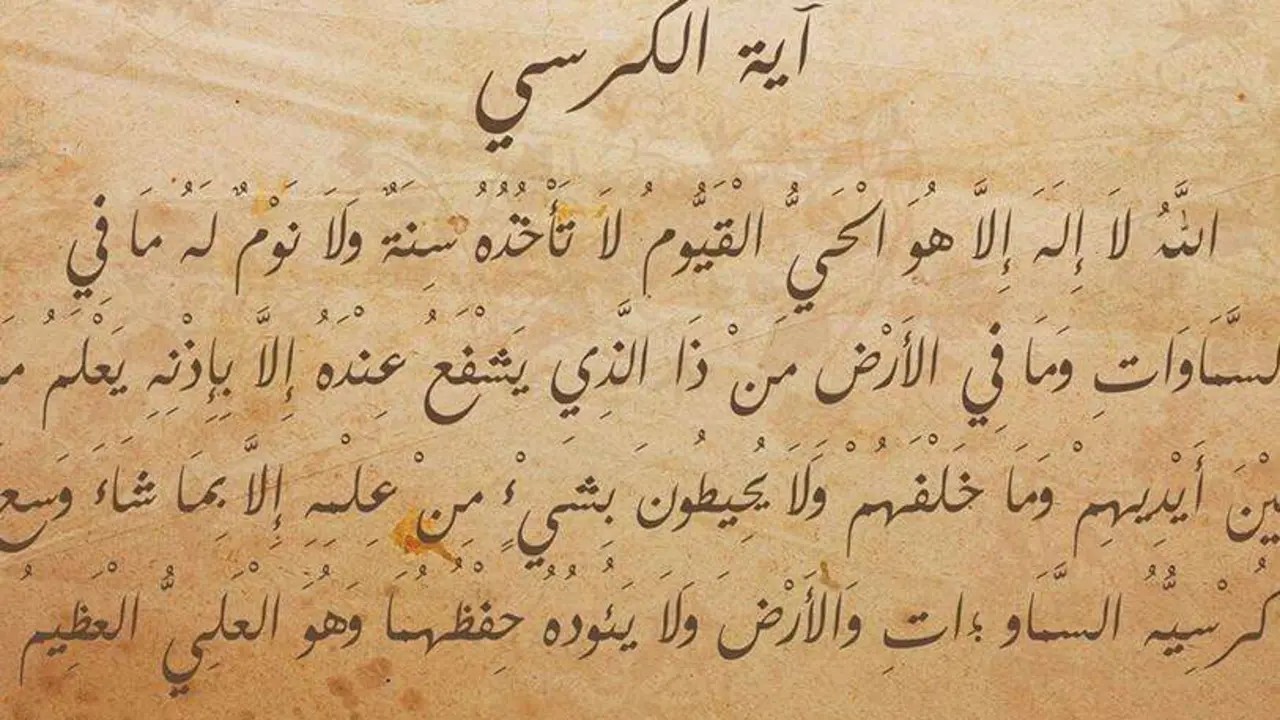 آية الكرسي
اللَّهُ لاَ إِلَهَ إِلاَّ هُوَ الْحَيُّ الْقَيُّومُ لاَ تَأْخُذُهُ سِنَةٌ وَلاَ نَوْمٌ لَهُ مَا فِي
السَّمَاوَاتِ وَمَا فِي الأَرْضِ مَنْ ذَا الَّذِي يَشْفَعُ عِنْدَهُ إِلاَّ بِإِذْنِهِ يَعْلَمُ مَ
يْنَ أَيْدِيهِمْ وَمَا خَلْفَهُمْ وَلاَ يُحِيطُونَ بِشَيْءٍ مِنْ عِلْمِهِ إِلاَّ بِمَا شَاءَ وَسِع
كُرْسِيُّهُ السَّمَاو ؛اتِ وَالأَرْضَ وَلاَ يَئُودُهُ حِفْظُهُمَا وَهُوَ الْعَلِيُّ الْعَظِيمُ